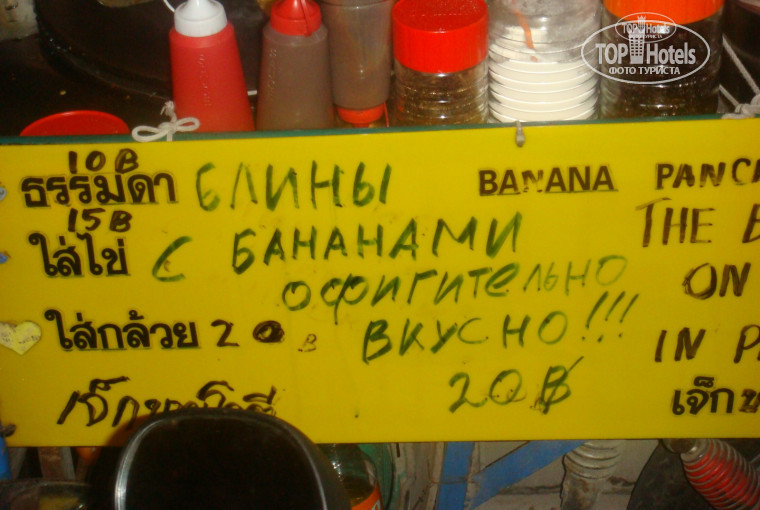 TOP Hotels
ФОТО ТУРИСТА
10B
ธรรมดา
15B
ใส่ไข่
ใส่กล้วย 20 B
БЛИНЫ
С БАНАНАМИ
ОФИГИТЕЛЬНО
ВКУСНО!!!
20฿
BANANA PANC
THE B
ON
IN P
เจ็ก